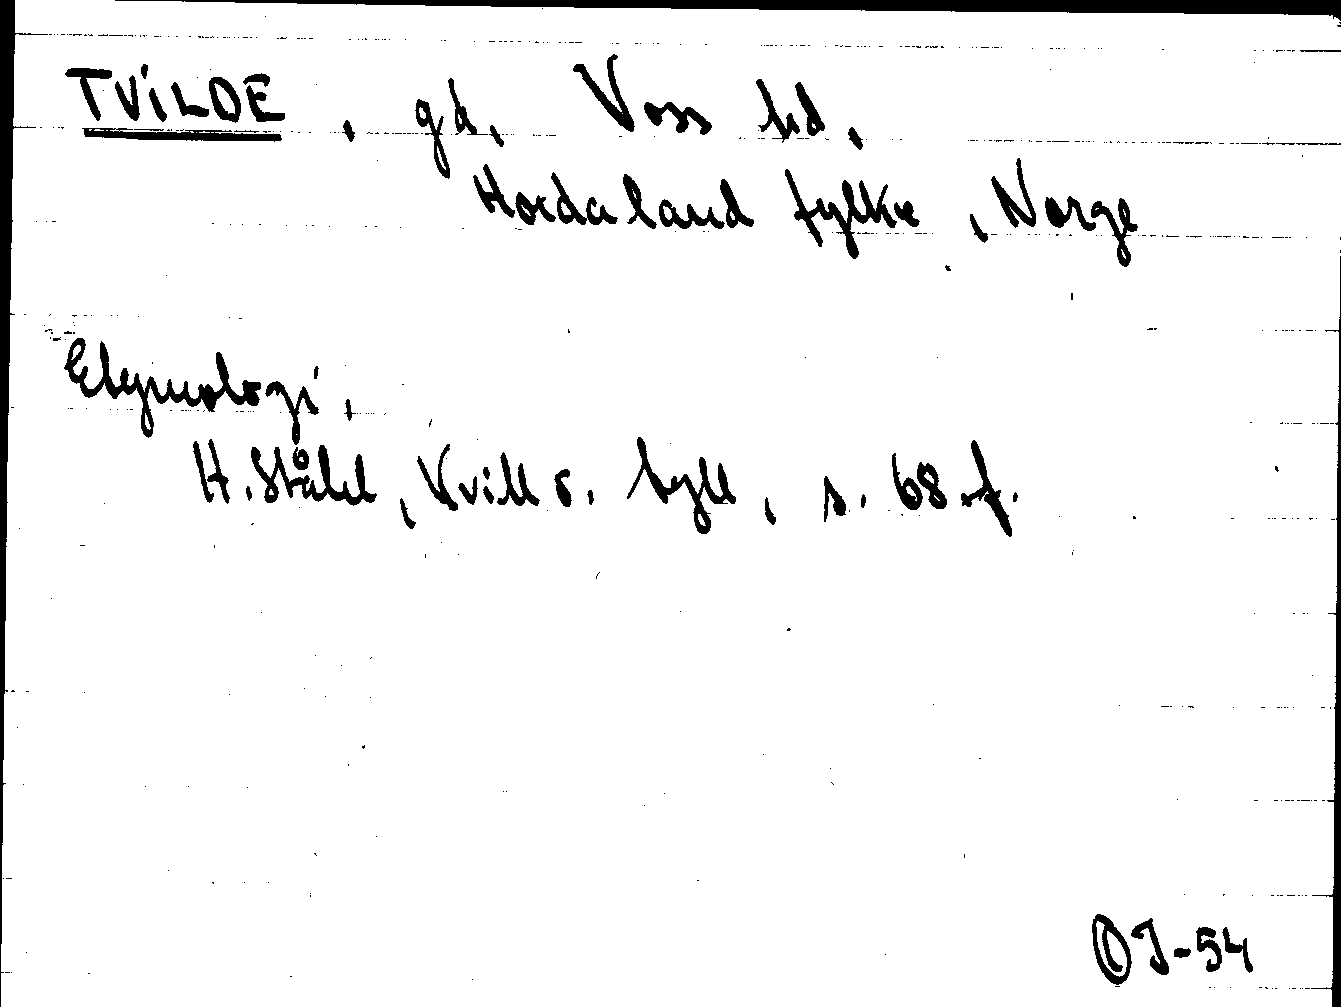 TVILDE, gd, Voss hd,
Hordaland fylke, Norge
Etymologi,
H. Ståhl, Kvill o. tyll, s. 68 f.
OJ-54